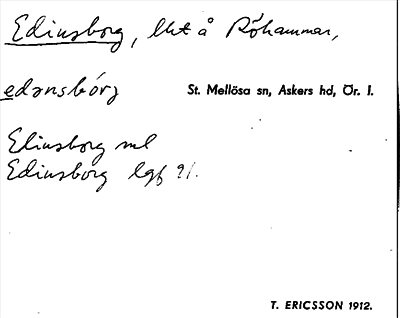 Edinsborg, lht å Röhammar,
edənsbórj
St. Mellösa sn, Askers hd, Ör. l.
Edinsborg ml
Edinsborg lgf 91.
T. ERICSSON 1912.